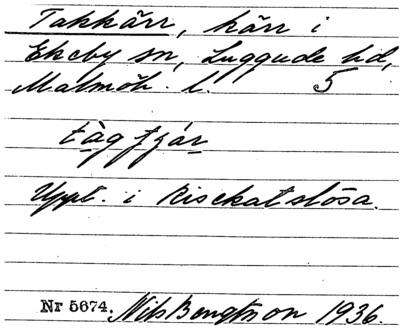 Takkärr, kärr i
Ekeby sn, Luggude hd,
Malmöh. l. 5
tàg tjár
Uppt. i Risekatslösa.
Nr 5674. Nils Bengtsson 1936.